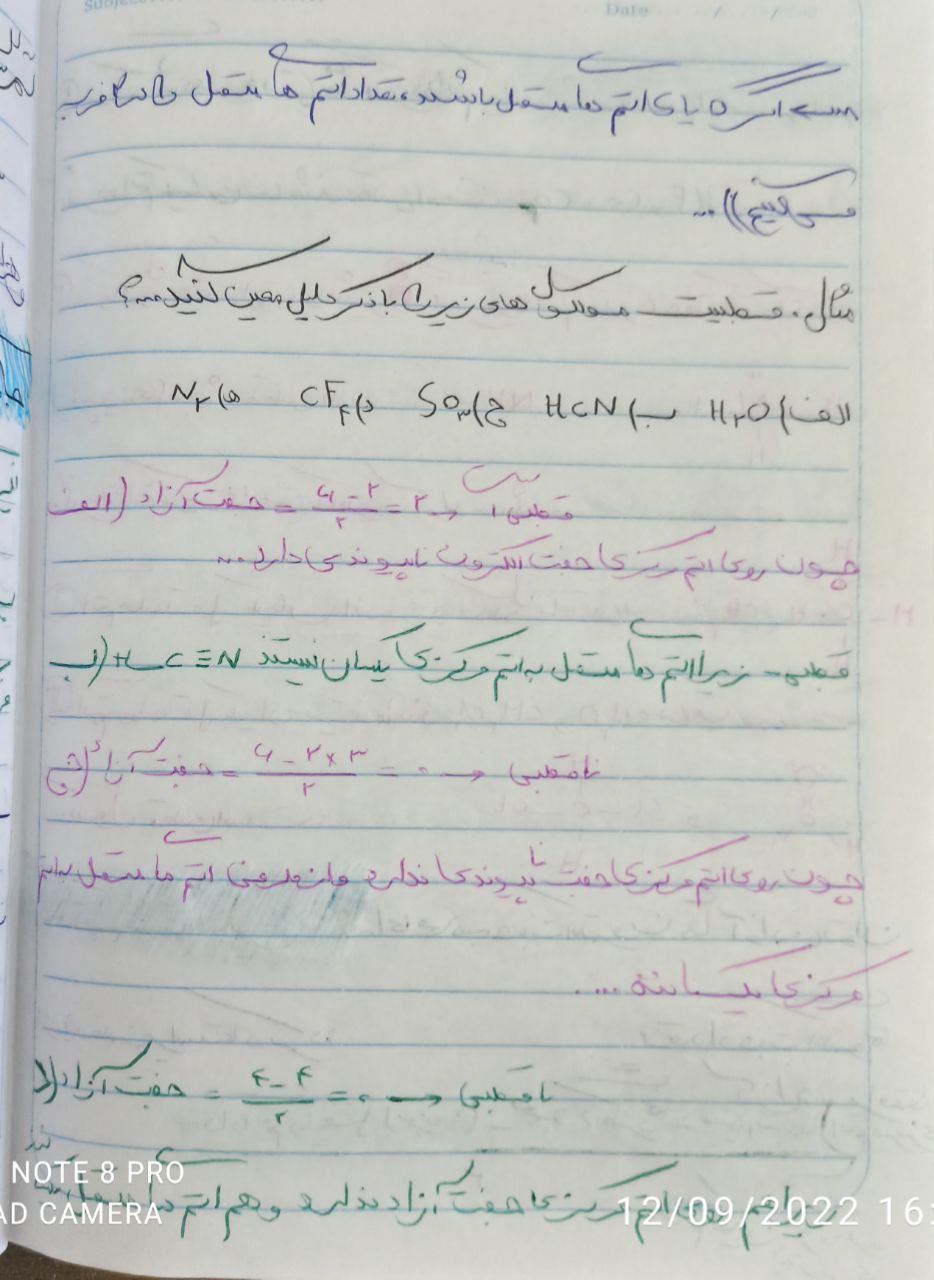 Date
اگر O یا S اتم های متصل باشند، تعداد اتم های متصل را در ۲ ضرب
می کنیم))...
مثال. قطبیت مولکول های زیر را با ذکر دلیل معین کنید...؟
الف) H۲O ب) HCN ج) SO۳ د) CF۴ ه) N۲
الف) جفت آزاد = ۶-۲/۲ = ۲ → قطبی
چون روی اتم مرکزی جفت الکترون ناپیوندی دارد...
ب) H-C≡N قطبی - زیرا اتم های متصل به اتم مرکزی یکسان نیستند
ج) جفت آزاد = ۶-۲×۳/۲ = ۰ → ناقطبی
چون روی اتم مرکزی جفت ناپیوندی ندارد و از طرفی اتم ها متصل به اتم
مرکزی یکسانند....
د) جفت آزاد = ۴-۴/۲ = ۰ → ناقطبی
اتم مرکزی جفت آزاد ندارد و هم اتم های متصل
NOTE 8 PRO
AD CAMERA
12/09/2022 16: